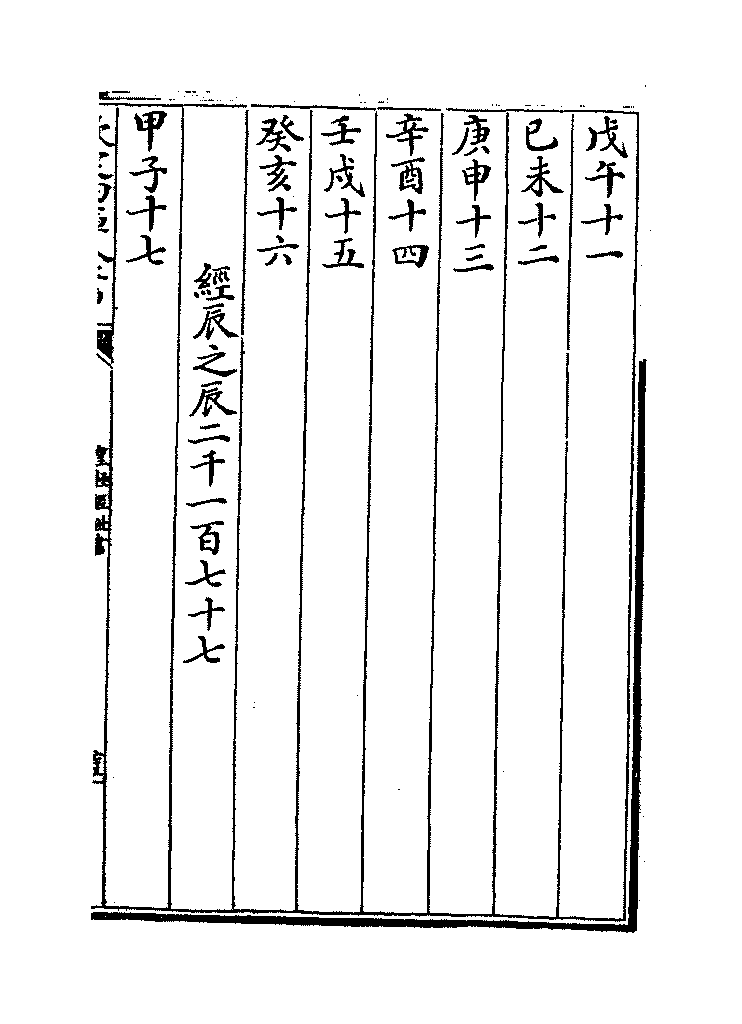 戊午十一
已未十二
庚申十三
辛酉十四
壬戌十五
癸亥十六
經辰之辰二千一百七十七
甲子十七